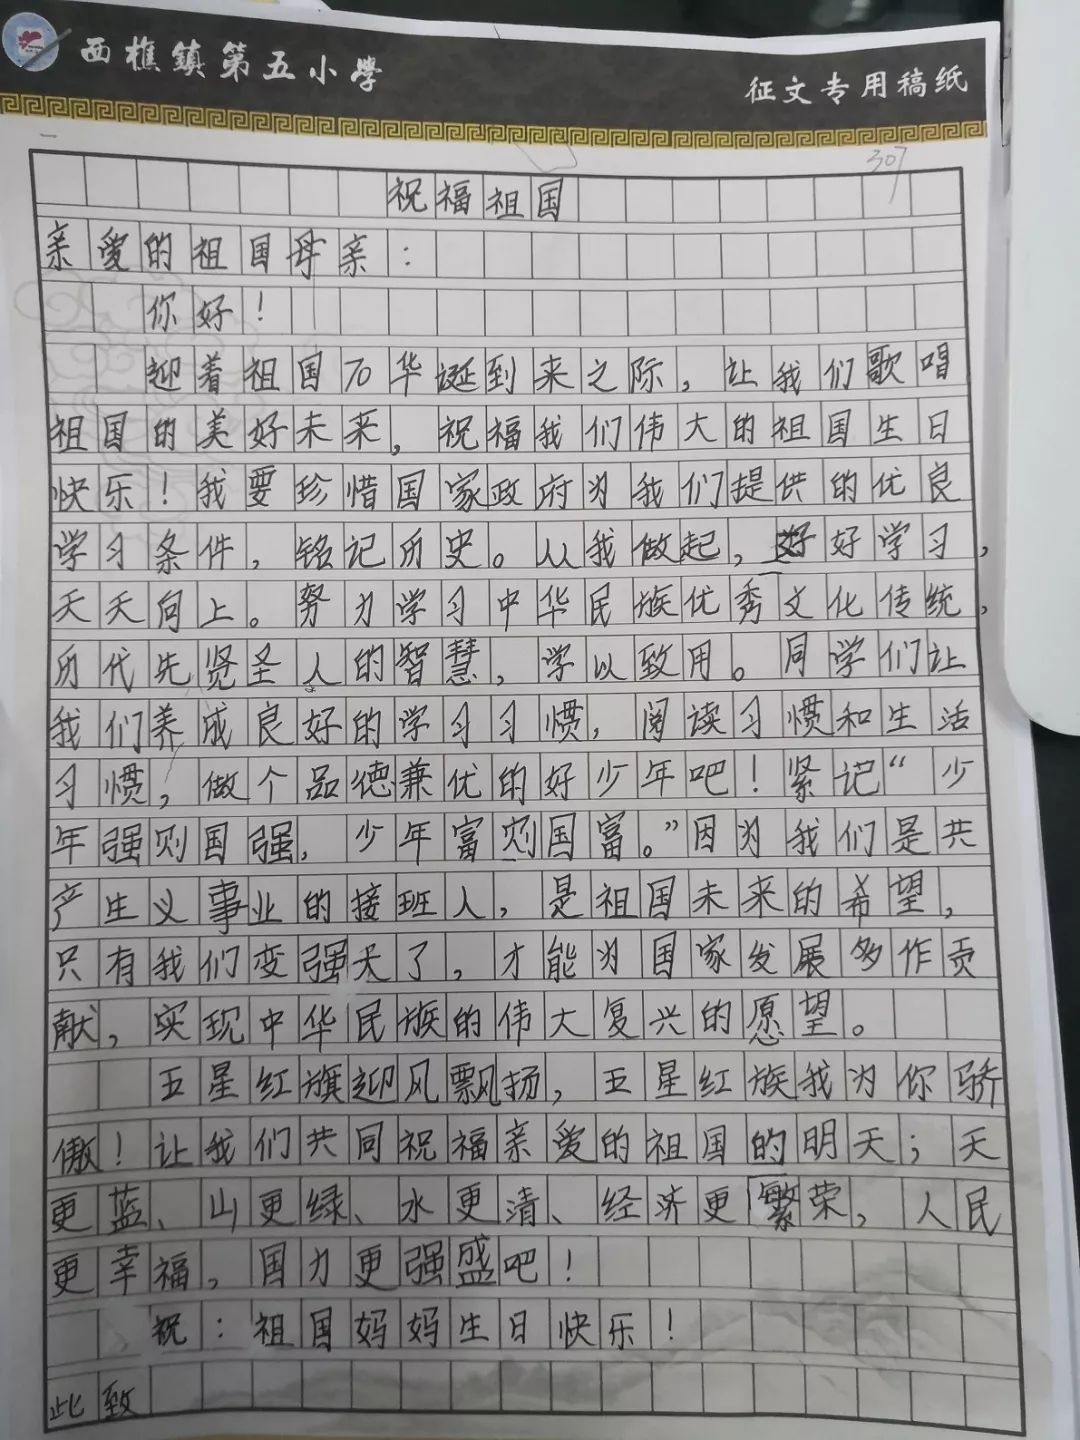 西樵鎮第五小學
征文专用稿纸
307
祝福祖国
亲爱的祖国母亲：
你好！
迎着祖国70华诞到来之际，让我们歌唱
祖国的美好未来，祝福我们伟大的祖国生日
快乐！我要珍惜国家政府为我们提供的优良
学习条件，铭记历史。从我做起，好好学习，
天天向上。努力学习中华民族优秀文化传统，
历代先贤圣人的智慧，学以致用。同学们让
我们养成良好的学习习惯，阅读习惯和生活
习惯，做个品德兼优的好少年吧！紧记“少
年强则国强，少年富则国富。”因为我们是共
产生义事业的接班人，是祖国未来的希望，
只有我们变强大了，才能为国家发展多作贡
献，实现中华民族的伟大复兴的愿望。
五星红旗迎风飘扬，五星红族我为你骄
傲！让我们共同祝福亲爱的祖国的明天；天
更蓝、山更绿、水更清、经济更繁荣，人民
更幸福，国力更强盛吧！
祝：祖国妈妈生日快乐！
此致